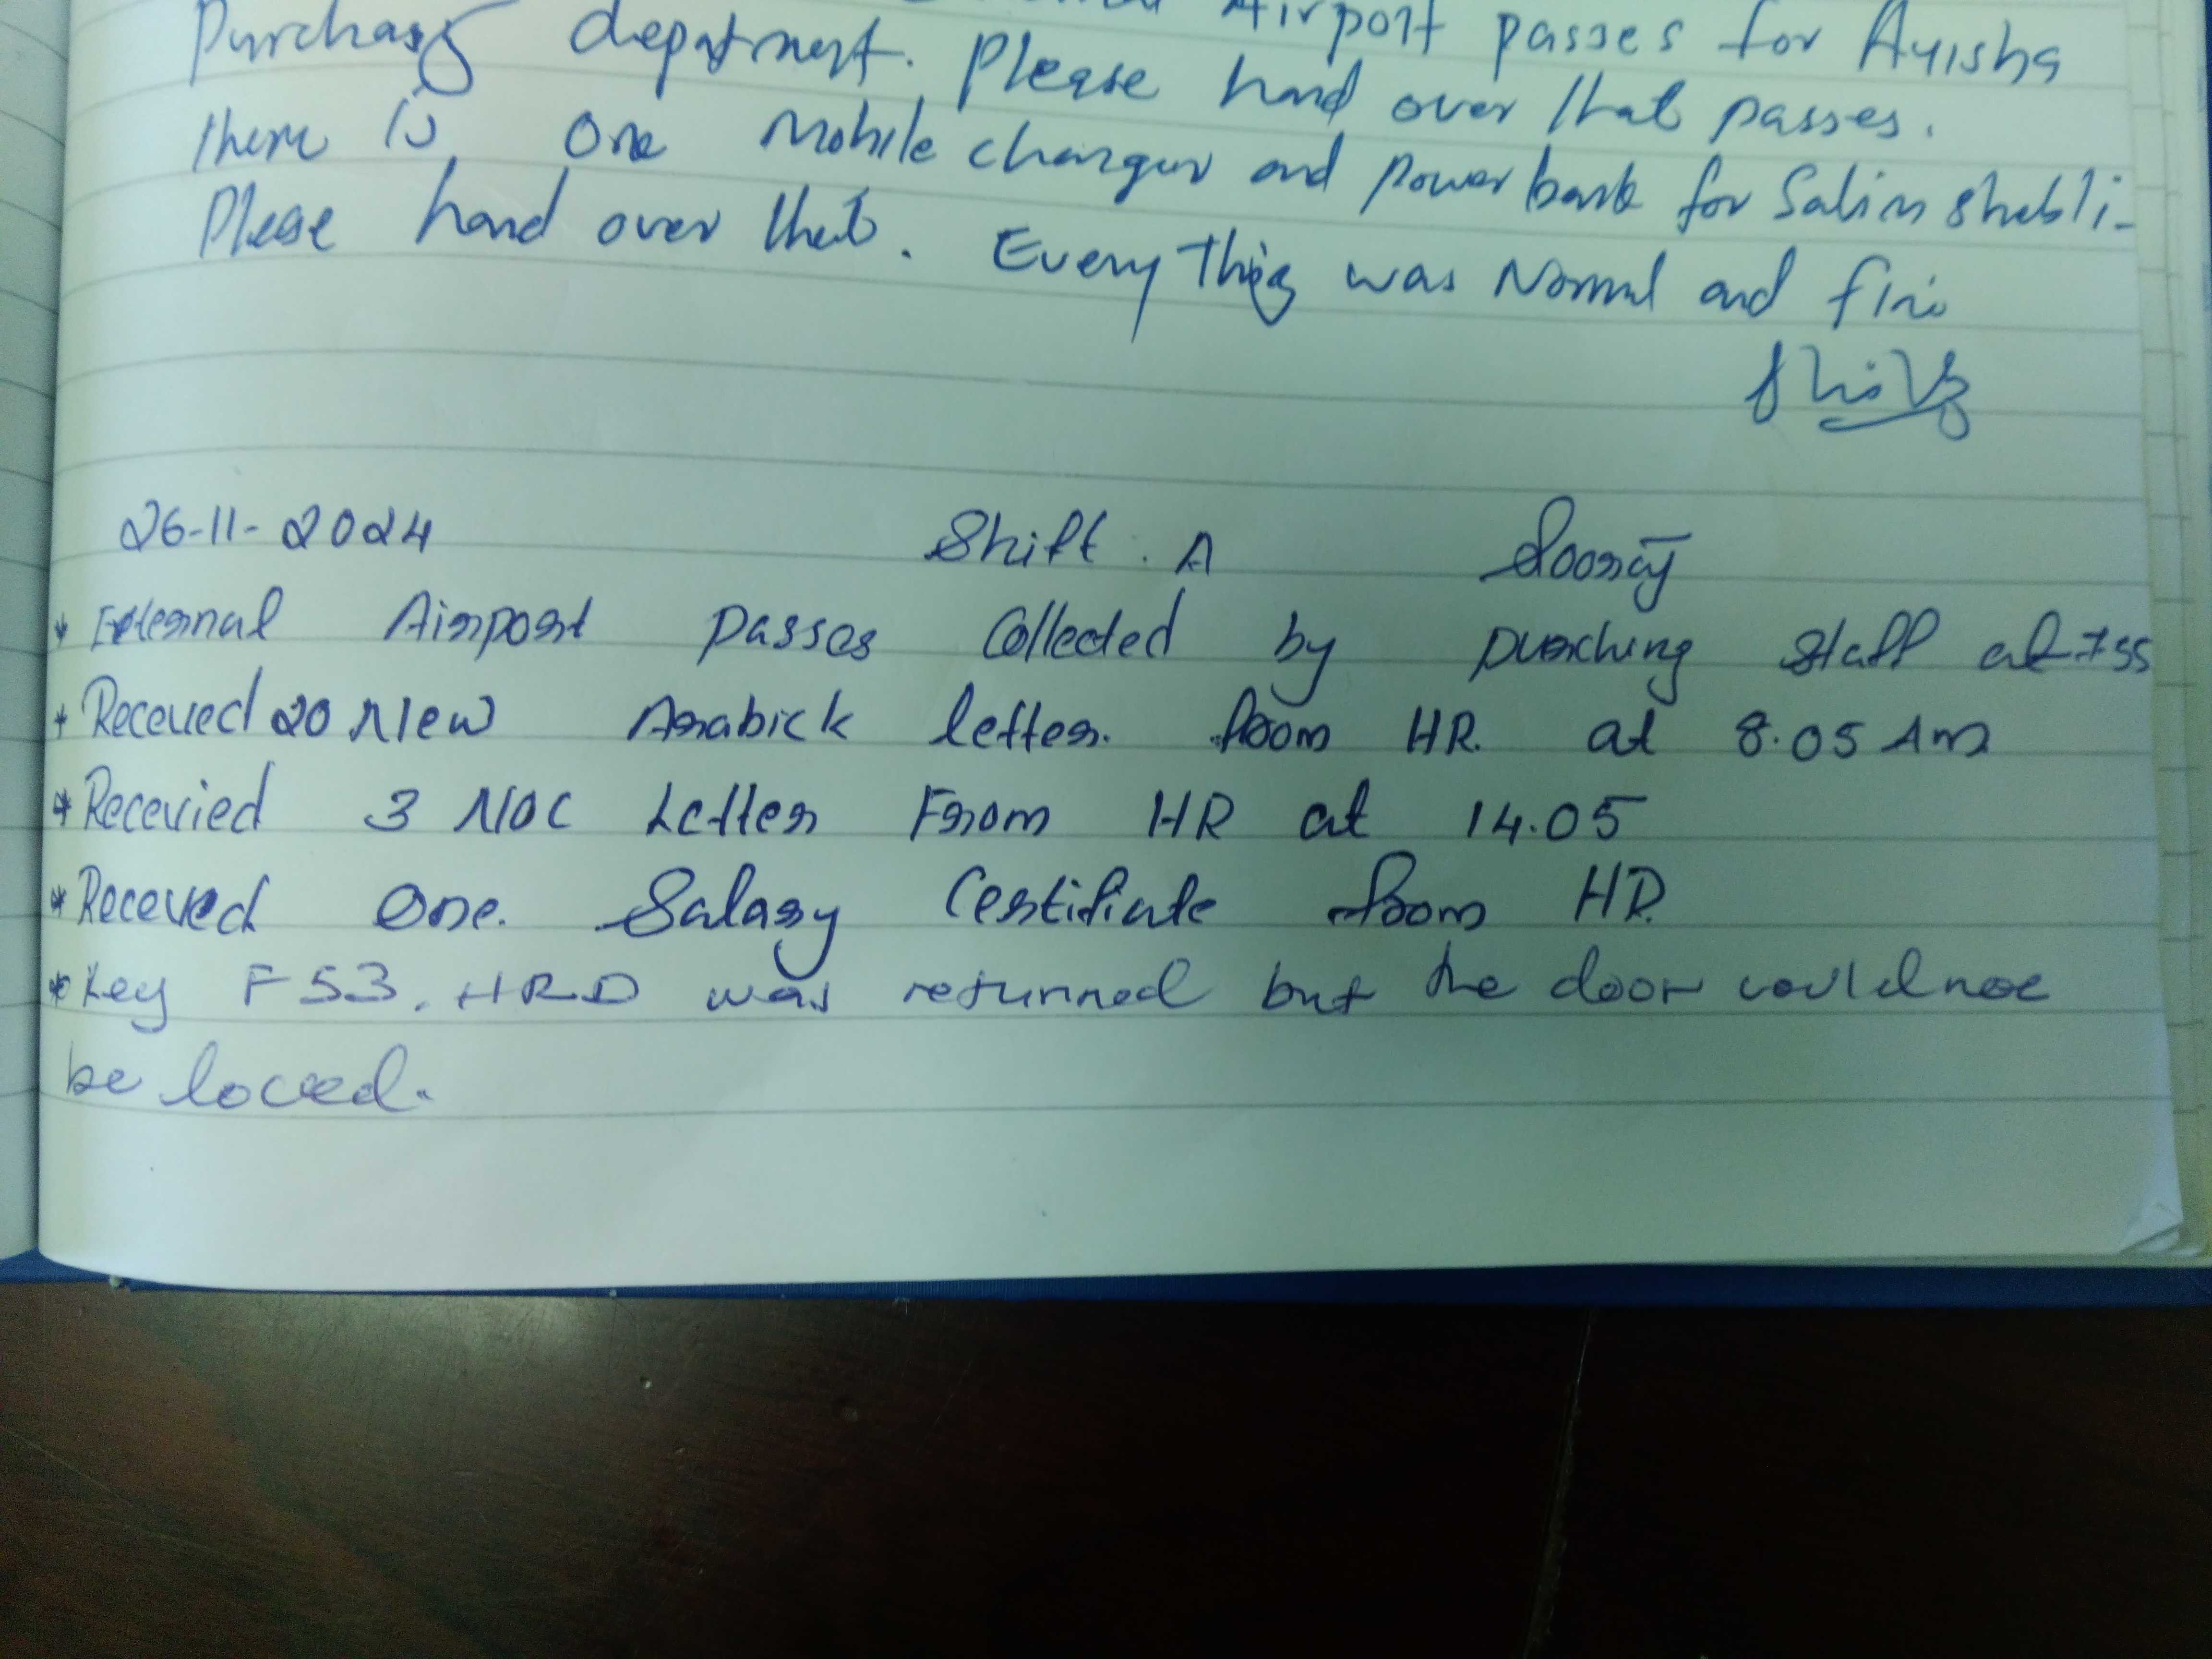 Airport passes for Ayisha
Purchasg department. Please hand over that passes.
there is one Mobile charger and Power bank for Salim Shebli-
Please hand over that. Every Thing was Normal and fine
26-11-2024 Shift. A
* External Airport passes Collected by purching Staff at 755
* Receved 20 New Arabick letter. from HR. at 8.05 Am
* Recevied 3 NOC Letter From HR at 14.05
* Receved One. Salary Certifiate from HR.
* Key F53. HRD was returned but the door could not
be loced.